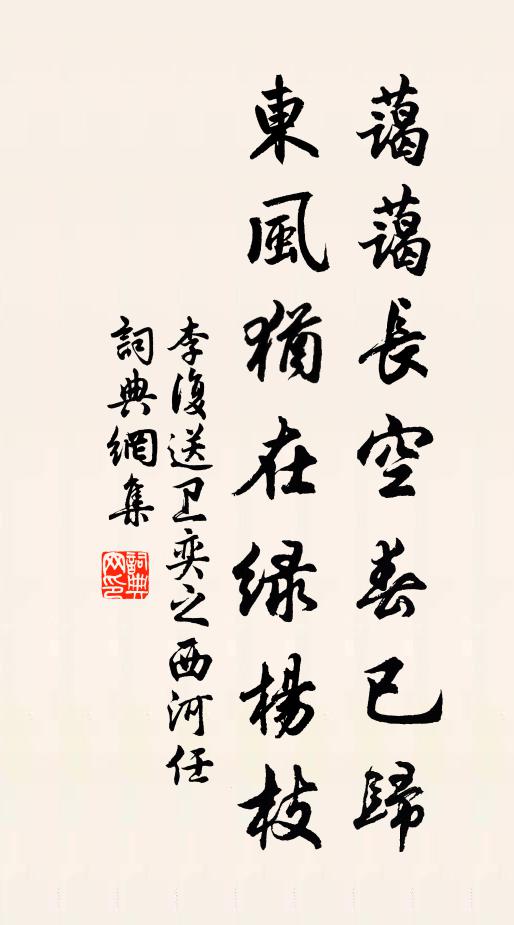 藹藹長空春已歸
東風猶在緑楊枝
李復送卫奕之西河任
詞典網集
詞典
网印